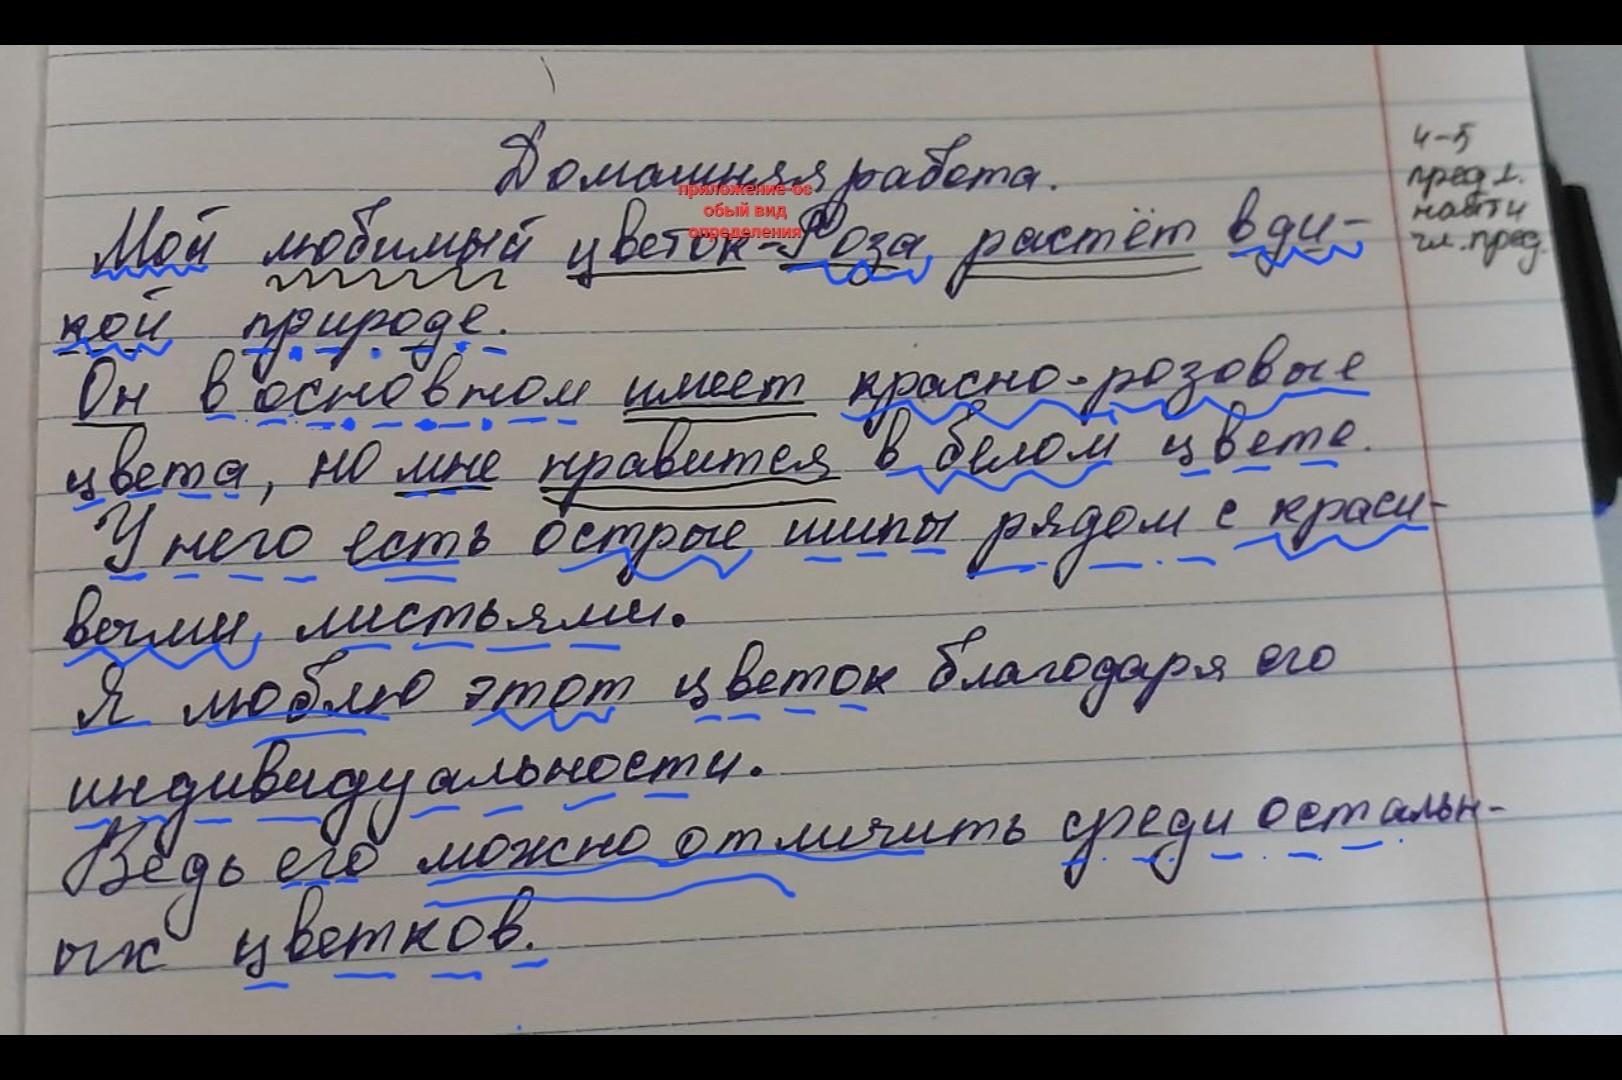 Домашняя работа.
приложение-ос
обый вид
определения
Мой любимый цветок-Роза растёт в ди-
кой природе.
Он в основном имеет красно-розовые
цвета, но мне нравится в белом цвете.
У него есть острые шипы рядом с краси-
выми листьями.
Я люблю этот цветок благодаря его
индивидуальности.
Ведь его можно отличить среди остальн-
ых цветков.
4-5
предл.
найти
гл. пред.